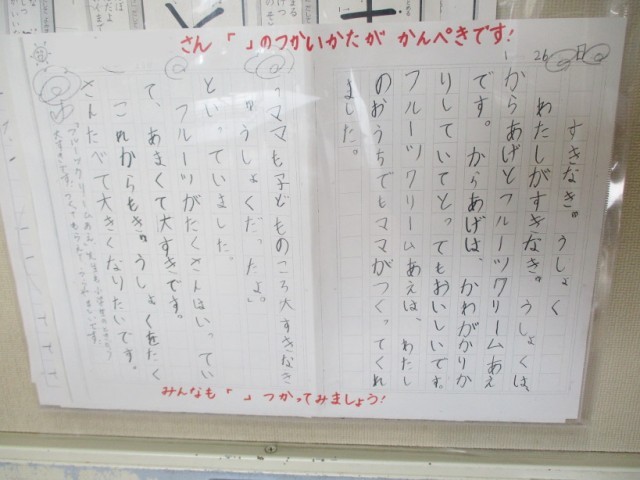 さん「 」のつかいかたが かんぺきです!
すきなき゛うしょく
わたしがすきなき゛うしょくは、
からあげとフルーツクリームあえ
です。からあげは、かわがかりか
りしていてとってもおいしいです。
フルーツクリームあえは、わたし
のおうちでもママがつくってくれ
ました。
「ママも子どものころ大すきなき
゛うしょくだったよ。」
といっていました。
フルーツがたくさんはいってい
て、あまくて大すきです。
これからもき゛うしょくをたく
さんたべて大きくなりたいです。
みんなも「 」つかってみましょう!